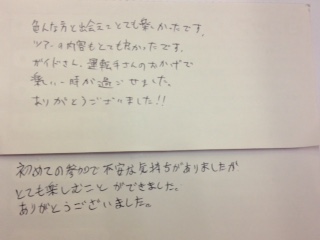 色んな方と出会えとても楽しかったです。
ツアー内容もとても良かったです。
ガイドさん、運転手さんのおかげで
楽しい一時が過ごせました。
ありがとうございました!!
初めての参加で不安な気持ちがありましたが
とても楽しむことができました。
ありがとうございました。